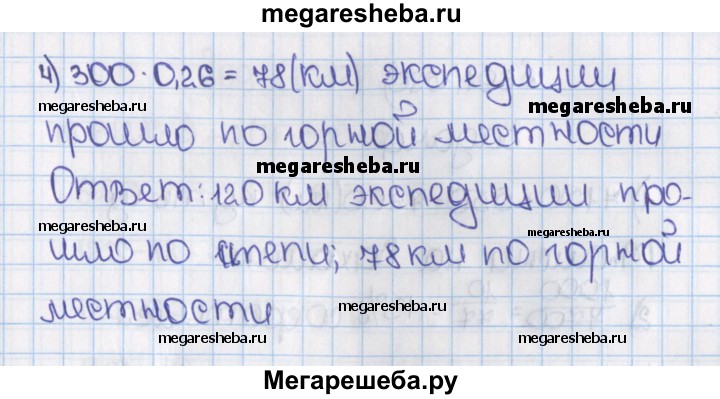 megaresheba.ru
4) 300 · 0,26 = 78 (км) экспедиции
megaresheba.ru megaresheba.ru
прошло по горной местности
megaresheba.ru
Ответ: 120 км экспедиции про-
megaresheba.ru megaresheba.ru
шло по степи; 78 км по горной
местности
megaresheba.ru
megaresheba.ru megaresheba.ru
Мегарешеба.ру